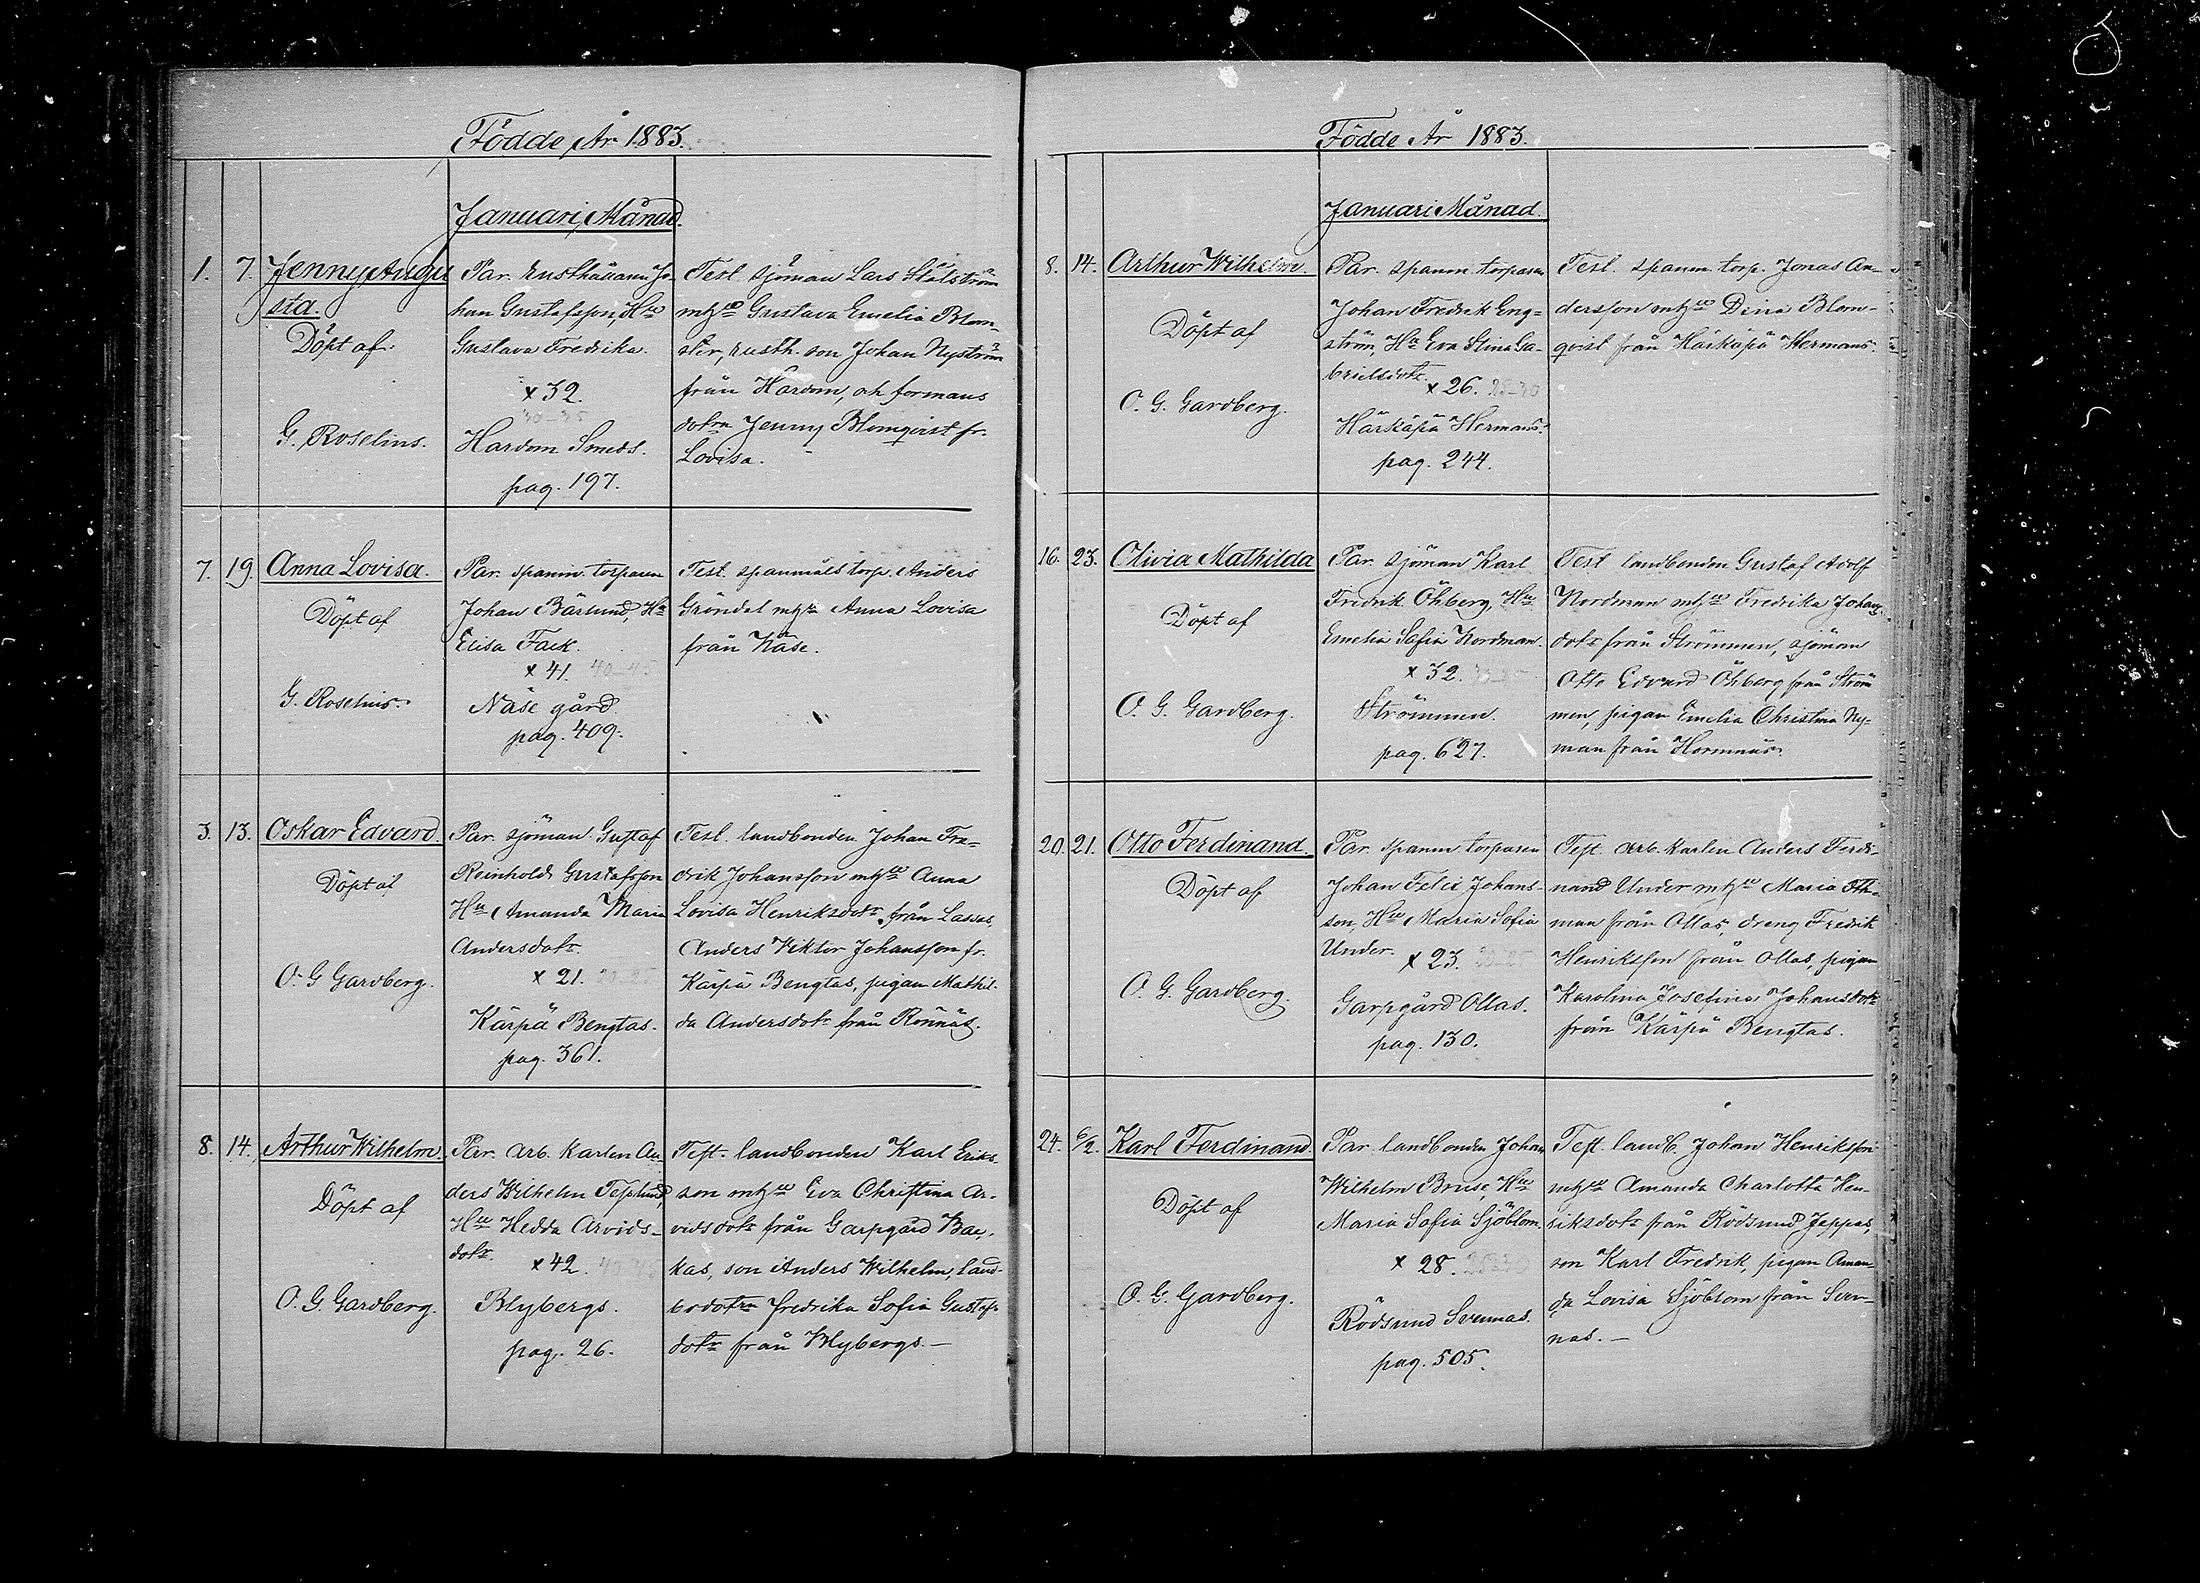 Födde År 1883.
Januari Månad.
1. 7. Jenny Augu
sta.
Döpt af:
G. Roselius.
Par. rusthållaren Jo-
han Gustafsson, Hu
Gustava Fredrika.
x 32.
30-35
Hardom Smeds.
pag. 197.
Test. sjöman Lars Stålström
mhu Gustava Emelia Blom-
ster, rusth. son Johan Nyström
från Hardom, och formans
dotra Jenny Blomqvist fr.
Lovisa.
7. 19. Anna Lovisa.
Döpt af
G. Roselius.
Par. spanm. torparen
Johan Bärlund, Hu
Elisa Fack.
x 41. 40-45
Näse gård
pag. 409.
Test. spanmåls torp. Anders
Gröndal Anna Lovisa
från Näse.
3. 13. Oskar Edvard.
Döpt af
O. G. Gardberg.
Par. sjöman Gustaf
Reinhold Gustafsson
Hu Amanda Maria
Andersdotr.
x 21. 20-25
Kärpä Bengtas.
pag. 361.
Test. landbonden Johan Fre-
drik Johansson Anna
Lovisa Henriksdotr. från Lassas,
Anders Viktor Johansson fr.
Kärpä Bengtas, pigan Mathil-
da Andersdotr från Rönnäs.
8. 14. Arthur Wilhelm.
Döpt af
O. G. Gardberg.
Par. arb. karlen An
ders Wilhelm Teslund,
Hu Hedda Arvids-
dotr.
x 42.
Blybergs.
pag. 26.
Test. landbonden Karl Eriks-
son Eva Christina Ar-
vidsdotr från Garpgård Bac-
kas, son Anders Wilhelm, land-
bodotra Fredrika Sofia Gustafs
dotr från Blybergs.—
Födde År 1883.
Januari Månad.
8. 14. Arthur Wilhelm.
Döpt af
O. G. Gardberg.
Par. spanm. torparen
Johan Fredrik Eng=
ström, Hu Eva Stina Ga-
brielsdotr.
x 26. 25-30
Härkäpä Hermans.
pag. 244.
Test. spanm. torp. Jonas An-
dersson Dina Blom-
qvist från Härkäpä Hermans.
16. 23. Olivia Mathilda
Döpt af
O. G. Gardberg.
Par. sjöman Karl
Fredrik Öhberg, Hu
Emelia Sofia Nordman.
x 32. 30-35
Strömmen.
pag. 627.
Test landbonden Gustaf Adolf
Nordman Fredrika Johans
dotr från Strömmen, sjöman
Otto Edvard Öhberg från Ström
men, pigan Emelia Christina Ny-
man från Hormnäs.
20. 21. Otto Ferdinand.
Döpt af
O. G. Gardberg.
Par. spanm torparen
Johan Felix Johans-
son, Hu Maria Sofia
Under.
x 23.
Garpgård Ollas.
pag. 130.
Test. arb. karlen Anders Ferdi-
nand Under Maria Öh-
man från Ollas, dreng Fredrik
Henriksson från Ollas, pigan
Karolina Josefina Johansdotr
från Kärpä Bengtas.
24. 6/2. Karl Ferdinand.
Döpt af
O. G. Gardberg.
Par. landbonden Johan
Wilhelm Bruse, Hu
Maria Sofia Sjöblom.
x 28.
Rödsund Svennas.
pag. 505.
Test. landb. Johan Henriksson
Amanda Charlotta Hen-
riksdotr från Rödsund Jeppas,
son Karl Fredrik, pigan Aman-
da Lovisa Sjöblom från Sven-
nas.—